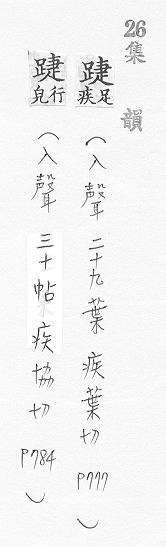 26
集韻
踕 疾足（入聲 二十九葉 疾葉切 P777）
踕 行皃（入聲 三十帖 疾協切 P784）